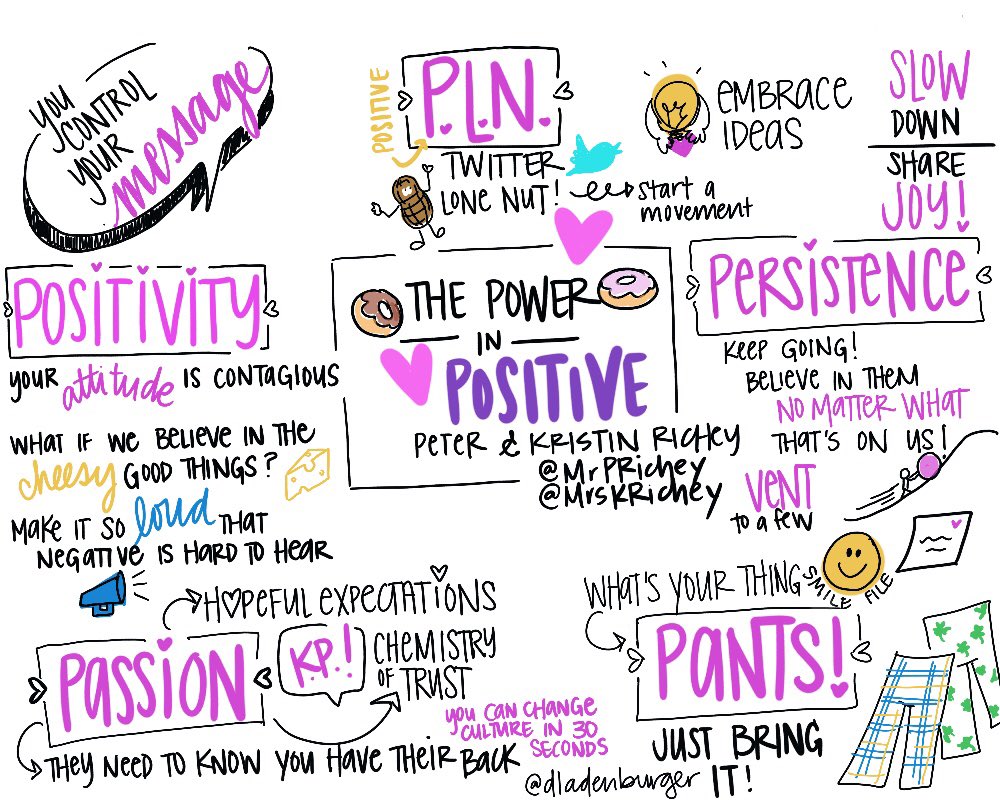 YOU
CONTROL
YOUR
message
POSITIVE
P.L.N.
TWITTER
LONE NUT!
start a
movement
EMBRACE
IDEAS
SLOW
DOWN
SHARE
JOY!
POSITIVITY
YOUR attitude IS CONTAGIOUS
WHAT IF WE BELIEVE IN THE
cheesy GOOD THINGS?
MAKE IT SO loud THAT
NEGATIVE IS HARD TO HEAR
THE POWER
IN
POSITIVE
PETER & KRISTIN RICHEY
@MrPRichey
@MrsKRichey
PERSISTENCE
KEEP GOING!
BELIEVE IN THEM
NO MATTER WHAT
THAT'S ON US!
VENT
to a few
HOPEFUL EXPECTATIONS
PASSION
K.P.!
CHEMISTRY
OF TRUST
THEY NEED TO KNOW YOU HAVE THEIR BACK
YOU CAN CHANGE
CULTURE IN 30
SECONDS
@dladenburger
WHAT'S YOUR THING
SMILE FILE
PANTS!
JUST BRING
IT!